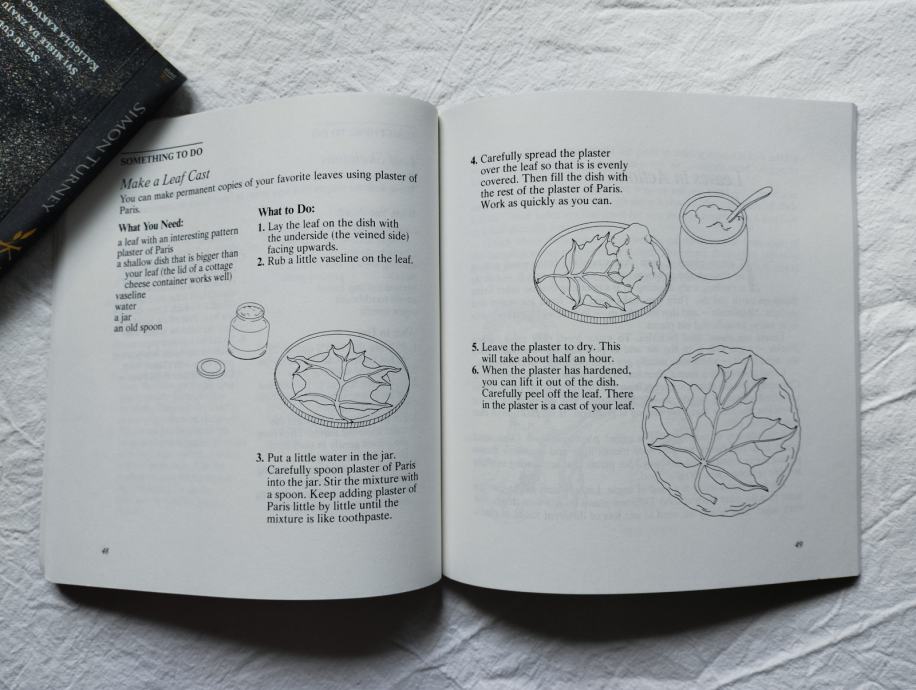 SVI SU ČULI
SVI MISLE DA ZNAJU
KALIGULA KAKVOG
SIMON TURNEY
SOMETHING TO DO
Make a Leaf Cast
You can make permanent copies of your favorite leaves using plaster of
Paris.
What You Need:
a leaf with an interesting pattern
plaster of Paris
a shallow dish that is bigger than
your leaf (the lid of a cottage
cheese container works well)
vaseline
water
a jar
an old spoon
What to Do:
1. Lay the leaf on the dish with
the underside (the veined side)
facing upwards.
2. Rub a little vaseline on the leaf.
3. Put a little water in the jar.
Carefully spoon plaster of Paris
into the jar. Stir the mixture with
a spoon. Keep adding plaster of
Paris little by little until the
mixture is like toothpaste.
48
4. Carefully spread the plaster
over the leaf so that is is evenly
covered. Then fill the dish with
the rest of the plaster of Paris.
Work as quickly as you can.
5. Leave the plaster to dry. This
will take about half an hour.
6. When the plaster has hardened,
you can lift it out of the dish.
Carefully peel off the leaf. There
in the plaster is a cast of your leaf.
49